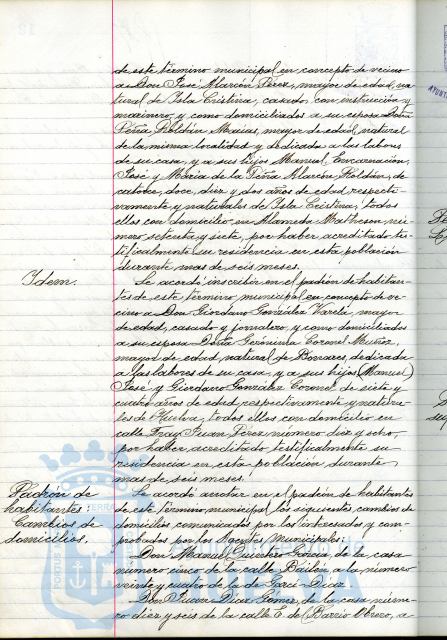 de este término municipal en concepto de vecino
a Don José Alarcón Pérez, mayor de edad, na-
tural de Isla Cristina, casado, con instrucción y
marinero, y como domiciliados a su esposa Doña
Peña Roldán Macías, mayor de edad, natural
de la misma localidad y dedicada a las labores
de su casa, y a sus hijos Manuel, Encarnación,
José y María de la Peña Alarcón Roldán, de
catorce, doce, diez y dos años de edad respecti-
vamente y naturales de Isla Cristina, todos
ellos con domicilio en Alameda Matheson nú-
mero setenta y siete, por haber acreditado tes-
tificalmente su residencia en esta población
durante mas de seis meses.
Idem.
Se acordó inscribir en el padrón de habitan-
tes de este término municipal en concepto de ve-
cino a Don Giordano González Varela, mayor
de edad, casado y jornalero, y como domiciliados
a su esposa Doña Gerónima Coronel Muñoz,
mayor de edad, natural de Bonares, dedicada
a las labores de su casa, y a sus hijos Manuel,
José y Giordano González Coronel de siete y
cuatro años de edad respectivamente y natura-
les de Huelva, todos ellos con domicilio en
calle Fray Juan Pérez número diez y ocho,
por haber acreditado testificalmente su
residencia en esta población durante
mas de seis meses.
Padrón de
habitantes:
Cambios de
domicilios.
Se acordó anotar en el padrón de habitantes
de este término municipal los siguientes cambios de
domicilios comunicados por los interesados y com-
probados por los Agentes Municipales:
Don Manuel Quintero García, de la casa
número cinco de la calle Bailén a la número
veinte y cuatro de la de Garci-Díaz.
Don Juan Díaz Gómez, de la casa núme-
ro diez y seis de la calle E. de (Barrio Obrero, a